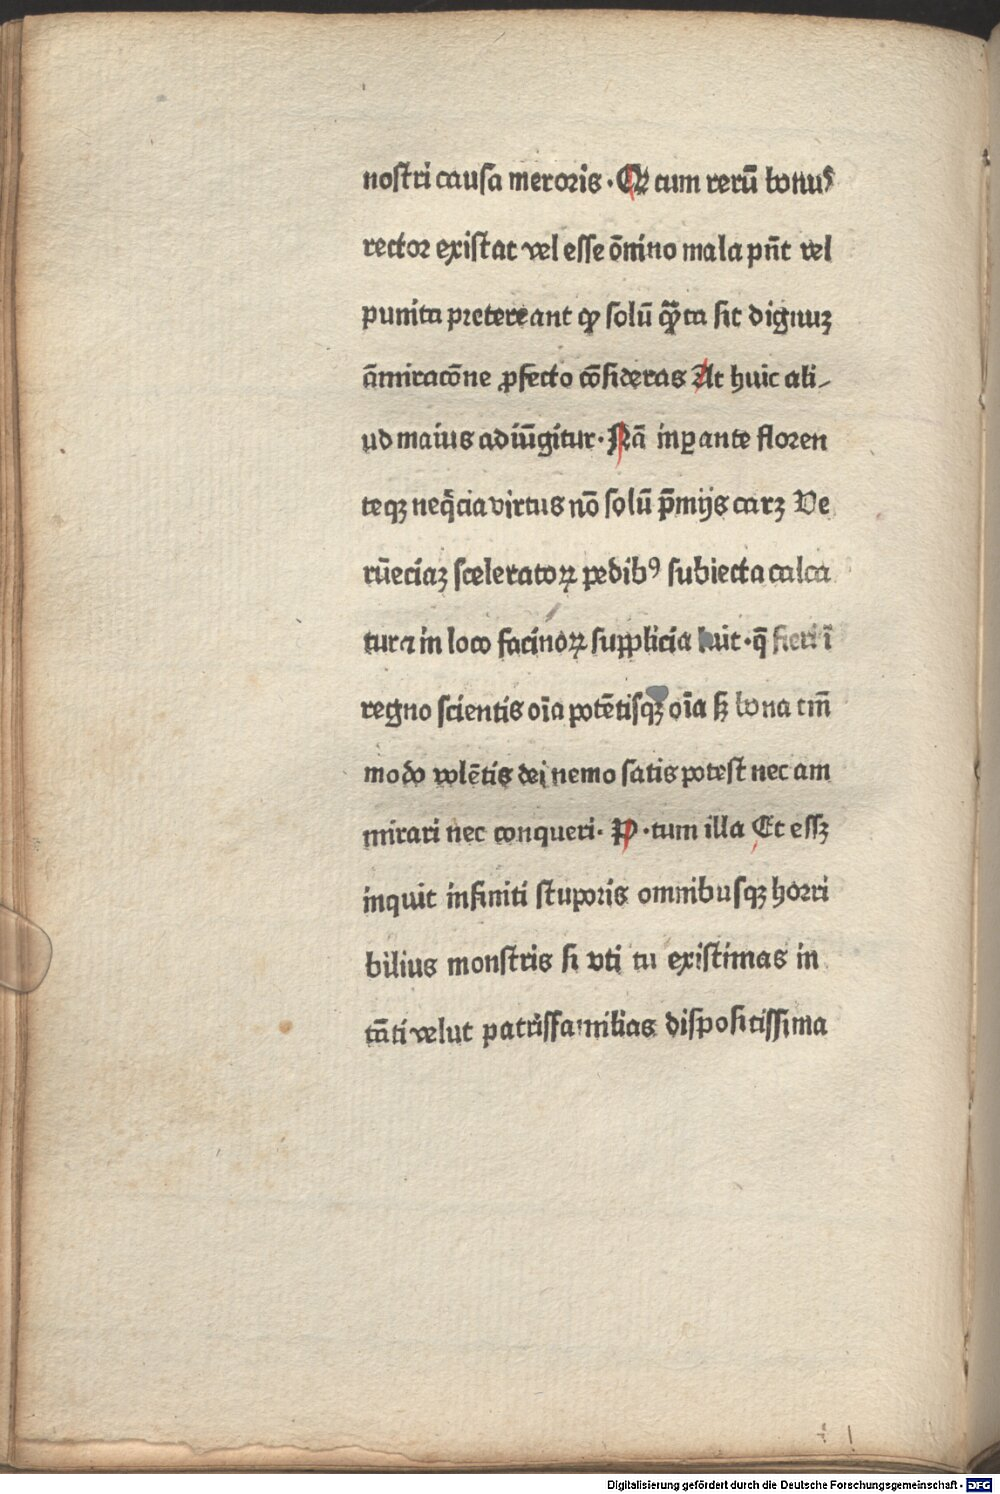 noſtri cauſa meroris · Qꝛ cum rerū bonuꝰ
rector exiſtat vel eſſe ōnino mala pn̄t vel
punita pretereant qꝫ ſolū q̄ꝫta ſit dignuꝫ
āmiracōne ꝓfecto cōſideras At huic ali-
ud maius adiūgitur · Nā inꝑante floren
teqꝫ neq̄cia virtus nō ſolū p̄mijs carꝫ Ve
rūeciaꝫ ſceleratoꝝ pedibꝰ ſubiecta calca
tur ⁊ in loco facinoꝝ ſupplicia luit · q̄ fieri ī
regno ſcientis oīa potētiſqꝫ oīa ſꝫ bona tm̄
modo volētis dei nemo ſatis poteſt nec am
mirari nec conqueri · P · tum illa Et eſſꝫ
inquit infiniti ſtuporis omnibuſqꝫ horri
bilius monſtris ſi vti tu exiſtimas in
tāti velut patriſſamilias diſpoſitiſſima
Digitalisierung gefördert durch die Deutsche Forschungsgemeinschaft - DFG